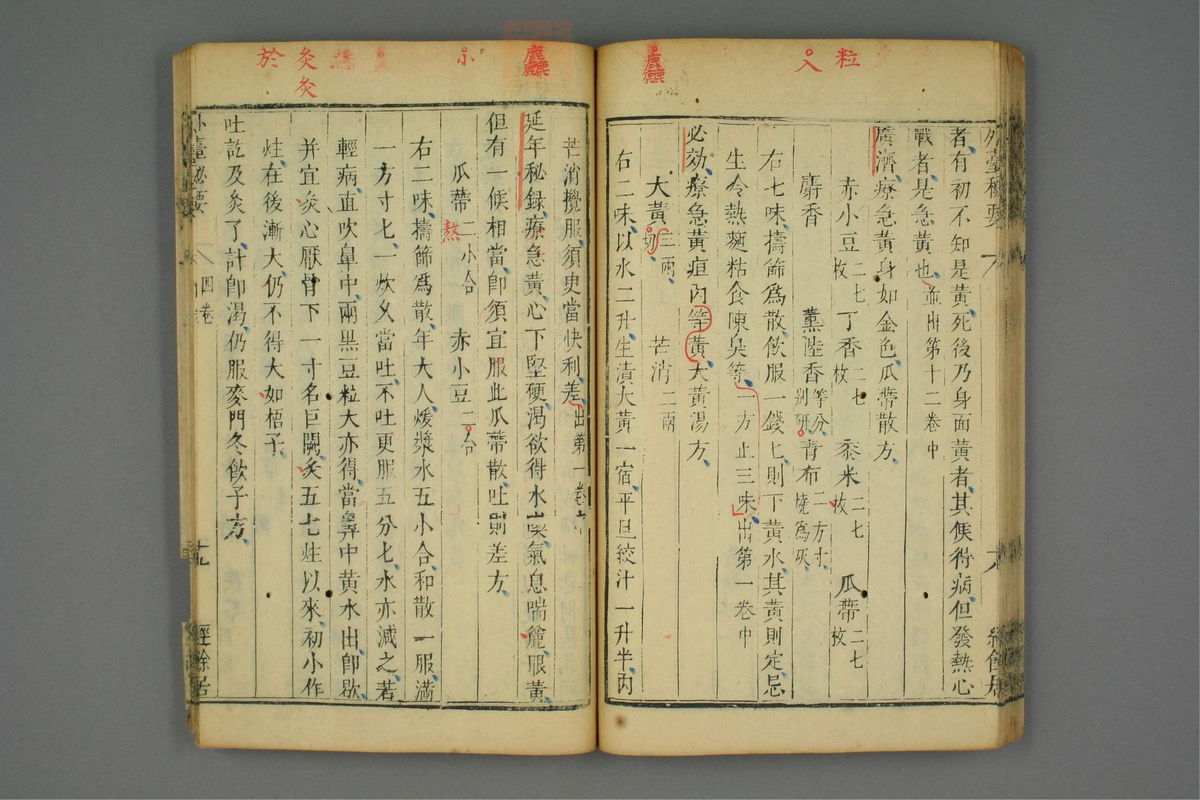 粒
入
麤
者有初不知是黃死後乃身面黃者其候得病但發熱心
戰者是急黃也並出第十二卷中
廣濟療急黃身如金色瓜蒂散方
赤小豆二七枚 丁香二七枚 黍米二七枚 瓜蒂二七枚
麝香 薰陸香等分別研 青布二方寸燒為灰
右七味擣篩為散飲服一錢匕則下黃水其黃則定忌
生令熱麵粘食陳臭等一方止三味出第一卷中
必効療急黃疸內等黃大黃湯方
大黃三兩切 芒消二兩
右二味以水二升生漬大黃一宿平旦絞汁一升半內
麤
小
炙炙
於
芒消攪服須臾當快利差出第一卷中
延年秘録療急黃心下堅硬渴欲得水喫氣息喘麄眼黃
但有一候相當卽須宜服此瓜蒂散吐則差方
瓜蒂二小合熬 赤小豆二合
右二味擣篩爲散年大人煖漿水五小合和散一服滿
一方寸匕一炊久當吐不吐更服五分匕水亦減之若
輕病直吹鼻中兩黑豆粒大亦得當鼻中黃水出卽歇
并宜灸心厭骨下一寸名巨闕灸五七炷以來初小作
炷在後漸大仍不得大如梧子
吐訖及灸了計卽渴仍服麥門冬飲子方
外臺秘要
四卷
十九
經餘居